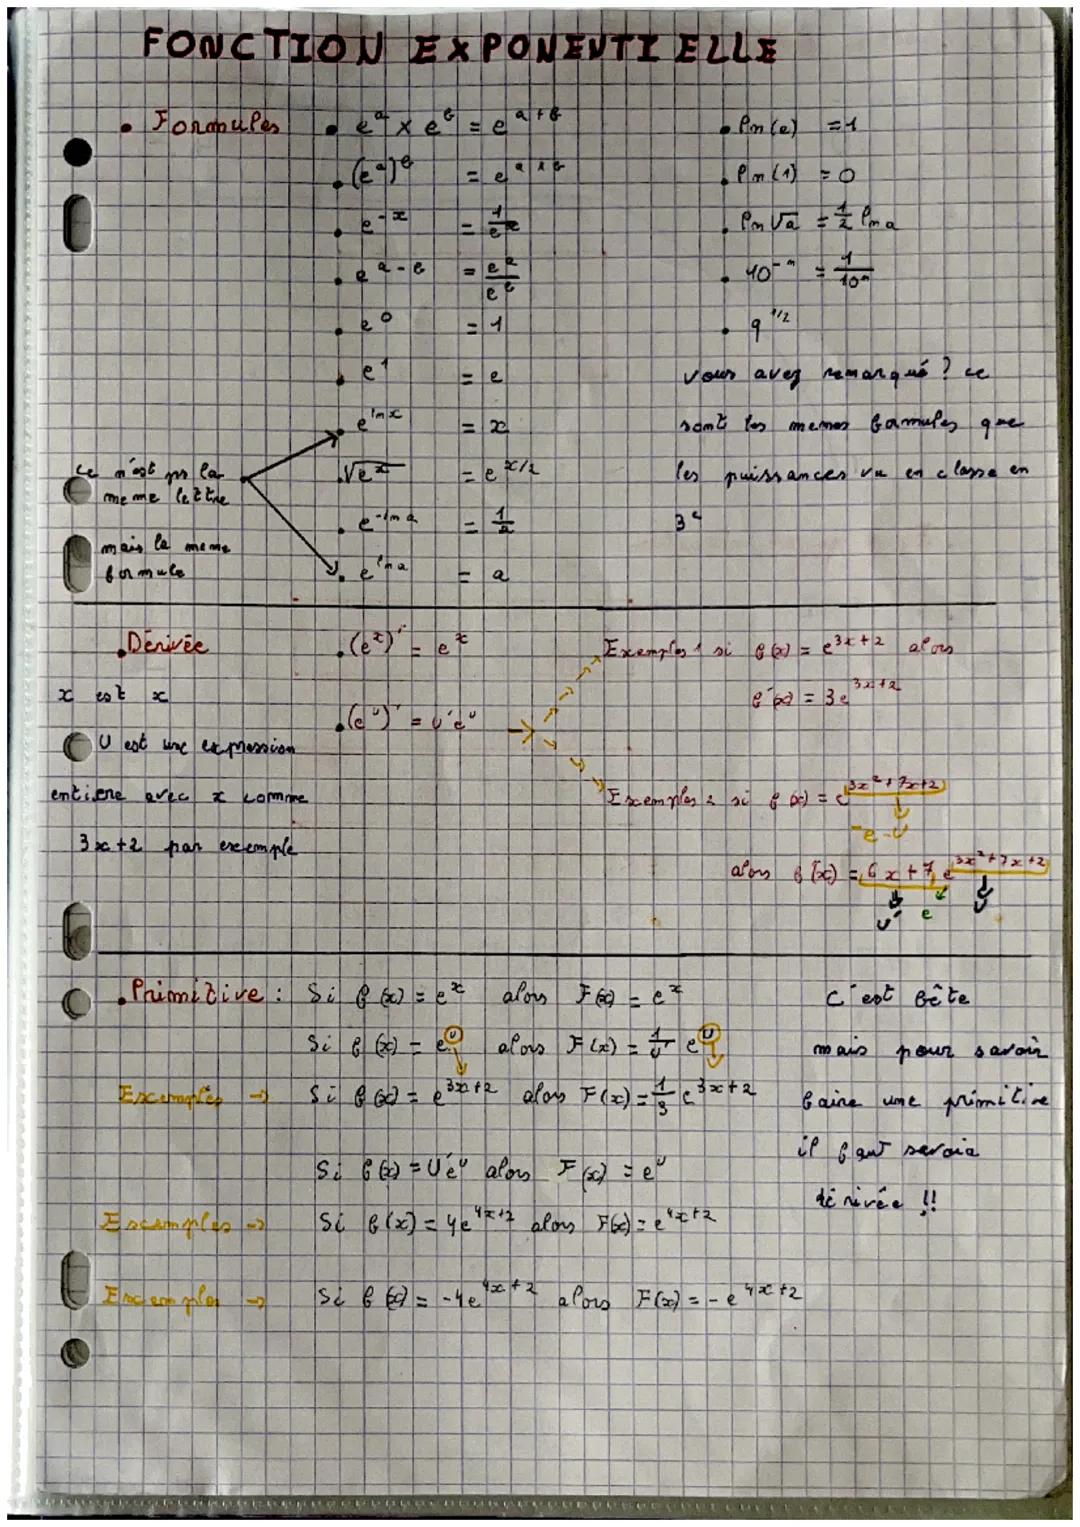 FONCTION EXPONENTIELLE
• Formules
• e^a x e^b = e^{a+b}
• (e^a)^b = e^{a x b}
• e^{-x} = 1/e^x
• e^{a-b} = e^a/e^b
• e^0 = 1
• e^1 = e
• e^{ln x} = x
• √e^x = e^{x/2}
• e^{-ln a} = 1/a
• e^{ln a} = a
• ln(e) = 1
• ln(1) = 0
• ln √a = 1/2 ln a
• 10^{-n} = 1/10^n
• 9^{1/2}
vous avez remarqué ? ce
sont les memes formules que
les puissances vu en classe en
3^e
ce n'est ps la
meme lettre
mais la meme
formule
• Dérivée
x est x
U est une expression
entiere avec x comme
3x+2 par exemple
• (e^x)' = e^x
• (e^U)' = U'e^U
Exemples 1 si f(x) = e^{3x+2} alors
f'(x) = 3e^{3x+2}
Exemples 2 si f(x) = e^{3x²+7x+2}
-e-U
alors f'(x) = 6x+7 e^{3x²+7x+2}
U' e U
• Primitive : Si f(x) = e^x alors F(x) = e^x
Si f(x) = e^U alors F(x) = 1/U' e^U
Exemples → Si f(x) = e^{3x+2} alors F(x) = 1/3 e^{3x+2}
Si f(x) = U'e^U alors F(x) = e^U
Exemples → Si f(x) = 4e^{4x+2} alors F(x) = e^{4x+2}
Exemples → Si f(x) = -4e^{4x+2} alors F(x) = -e^{4x+2}
C'est bête
mais pour savoir
faire une primitive
il faut savoir
dérivée !!